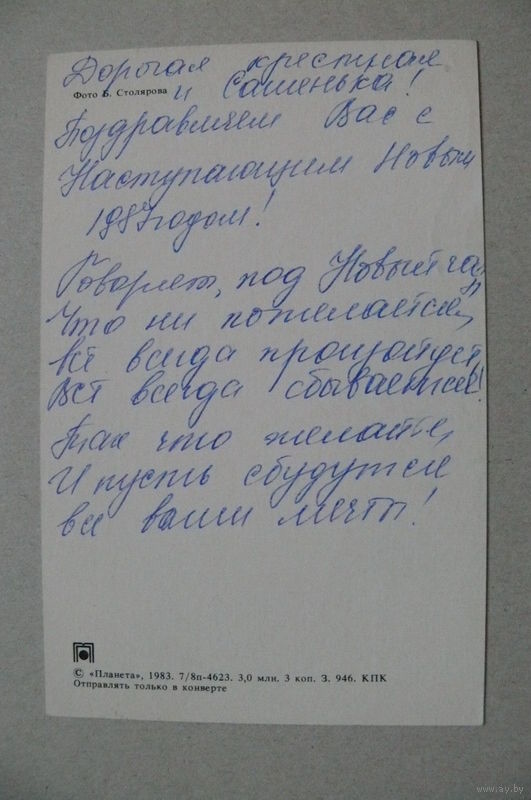 Дорогая крестная
Фото Б. Столярова
и Сашенька!
Поздравляем Вас с
Наступающим Новым
1987 годом!
Говорят, под Новый год
Что ни пожелается,
Всё всегда произойдёт,
Всё всегда сбывается!
Так что желайте,
И пусть сбудутся
все ваши мечты!
© «Планета», 1983. 7/8п-4623. 3,0 млн. 3 коп. З. 946. КПК
Отправлять только в конверте
www.ay.by